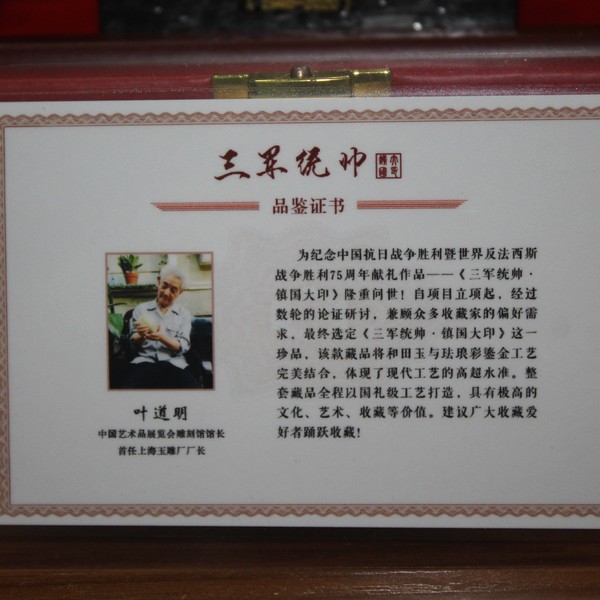 三军统帅
品鉴证书
为纪念中国抗日战争胜利暨世界反法西斯
战争胜利75周年献礼作品——《三军统帅·
镇国大印》隆重问世！自项目立项起，经过
数轮的论证研讨，兼顾众多收藏家的偏好需
求，最终选定《三军统帅·镇国大印》这一
珍品，该款藏品将和田玉与珐琅彩鎏金工艺
完美结合，体现了现代工艺的高超水准。整
套藏品全程以国礼级工艺打造，具有极高的
文化、艺术、收藏等价值。建议广大收藏爱
好者踊跃收藏！
叶道明
中国艺术品展览会雕刻馆馆长
首任上海玉雕厂厂长